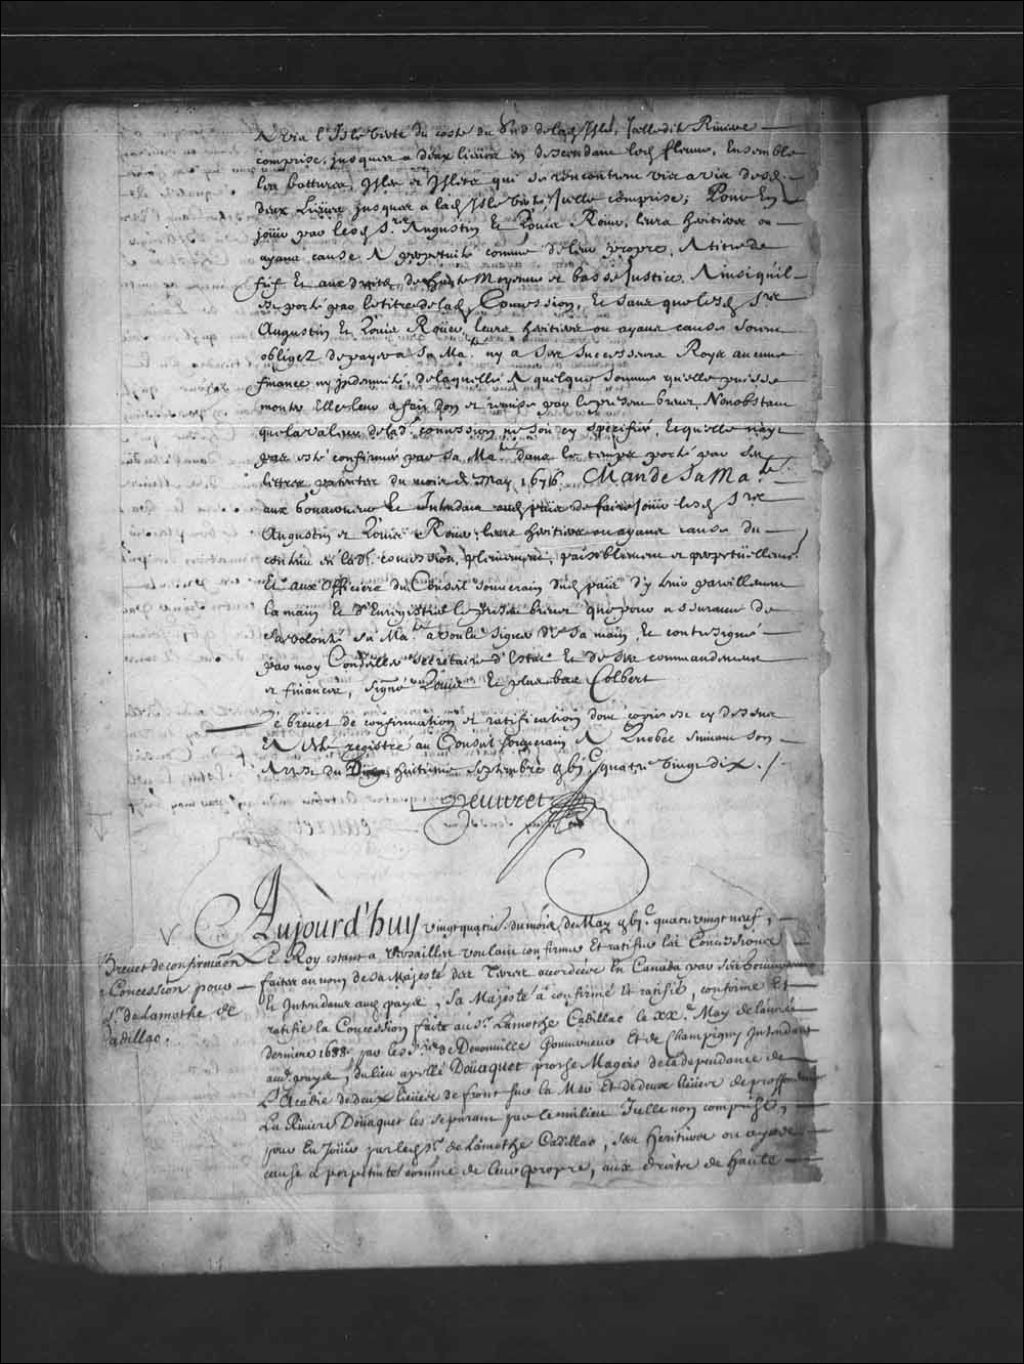 A via l'Isle Verte du costé du Sud de lad. Isle, Icelle dite Riviere
comprise, jusques a deux lieües en descendant led. fleuve, Ensemble
les battures, Isles et Islets qui se rencontrent vis a vis desd.
deux Lieües jusques a lad. Isle Verte Icelle comprise; Pour En
joüir par lesd. Srs. Augustin Et Loüis Roüer, leurs heritiers ou
ayans cause A perpetuité comme de leur propre, A titre de
fief Et aux droits de haute Moyenne et basse Justice, Ainsi qu'il
est porté par le titre de lad. Concession, Et sans que lesd. Srs.
Augustin Et Loüis Roüer, leurs heritiers ou ayans cause soient
obligez de payer a Sa Maté. ny a Ses Successeurs Roys aucune
finance ny jndemnité, de laquelle A quelque somme qu'elle puisse
monter Elle leur a fait Don et remise par le present brevet, Nonobstant
que la valeur de lad. concession ne soit cy specifiée, Et qu'elle n'ayt
pas esté confirmée par Sa Maté. dans le temps porté par Ses
lettres patentes du mois de May 1676. Mande Sa Maté.
aux Gouverneur Et Intendant aud. païs de faire joüir lesd. Srs.
Augustin et Loüis Roüer, leurs heritiers ou ayans cause du
contenu en lad. concession, plainement, paisiblement et perpetuellement
Et aux Officiers du Conseil souverain dud. païs d'y tenir pareillement
la main Et d'Enregistrer le present brevet que pour asseurance de
Sa volonté Sa Maté. a voulu signer de Sa main, Et contresigné
par moy Conseiller Secretaire d'Estat Et de Ses commandemens
et finances, Signé Loüis Et plus bas Colbert
Le brevet de confirmation et ratification dont copie est cy dessus
A Esté registré au Conseil souverain A Quebec suivant son
Arrest du dix huitieme Septembre gbjc. quatre vingt dix ./.
Peuvret
Aujourd'huy vingt quatrie. du mois de May gbjc. quatre vingt neuf,
Le Roy estant a Versailles voulant confirmer Et ratifier les Concessions
faites au nom de Sa Majesté des Terres accordées En Canada par Ses Gouverneur
Et Intendans aud. payis, Sa Majesté a confirmé Et ratifié, confirme Et
ratifie la Concession faite au Sr. Lamothe Cadillac le xxe. May de l'année
derniere 1688 par les Srs. de Denonville Gouverneur Et de Champigny Intendant
aud. payis, du lieu apellé Doüaquet proche Magéis de la dependance de
L'Acadie de deux lieües de front sur la Mer Et de deux lieües de proffondeur
La Riviere Doüaquet les separant par le milieu Icelle non comprise,
pour En Joüir par led. Sr. de Lamothe Cadillac, Ses heritiers ou ayans
cause a perpetuité comme de leur propre, aux droits de haute
Brevet de confirmaon.
Concession pour
Sr. de Lamothe de
Cadillac.